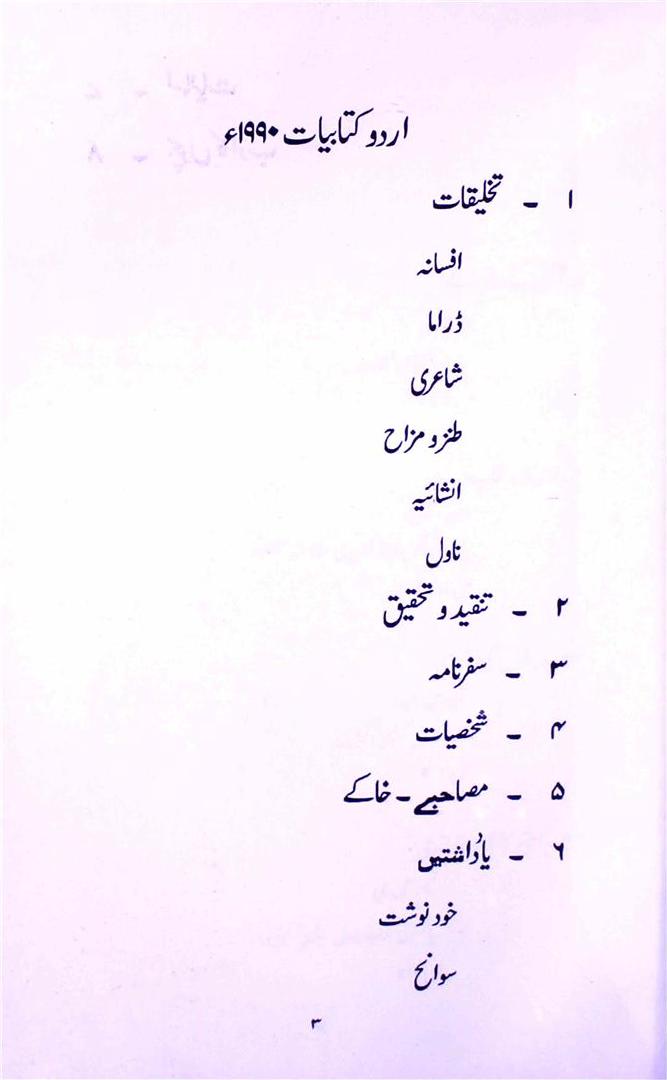 اردو کتابیات ۱۹۹۰ء
۱ - تخلیقات
افسانہ
ڈراما
شاعری
طنز و مزاح
انشائیہ
ناول
۲ - تنقید و تحقیق
۳ - سفرنامہ
۴ - شخصیات
۵ - مصاحبے - خاکے
۶ - یادُاشتیں
خود نوشت
سوانح
۳